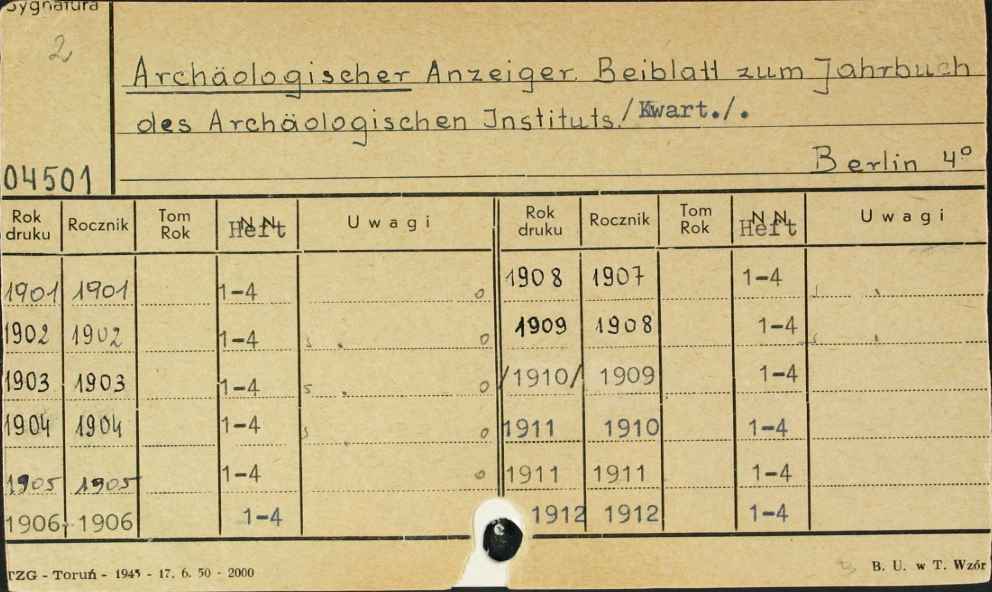 Sygnatura
2
Archäologischer Anzeiger. Beiblatt zum Jahrbuch
des Archäologischen Instituts./Kwart./.
04501
Berlin 4º
Rok druku Rocznik Tom Rok Heft Uwagi Rok druku Rocznik Tom Rok Heft Uwagi
1901 1901 1-4 0 1908 1907 1-4
1902 1902 1-4 0 1909 1908 1-4
1903 1903 1-4 0 /1910/ 1909 1-4
1904 1904 1-4 0 1911 1910 1-4
1905 1905 1-4 0 1911 1911 1-4
1906 1906 1-4 1912 1912 1-4
TZG - Toruń - 1945 - 17. 6. 50 - 2000
B. U. w T. Wzór